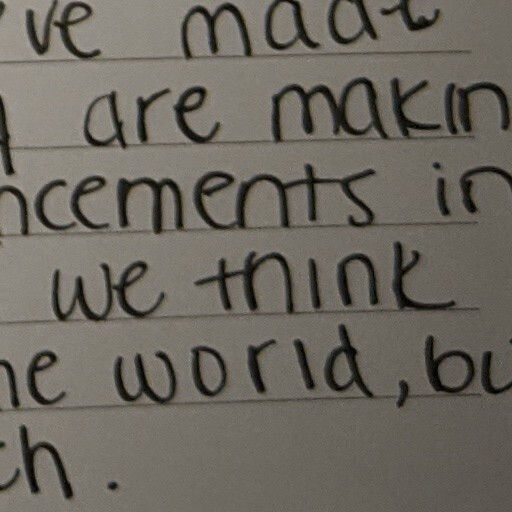 've made
are makin
ncements in
we think
he world, bu
ch.